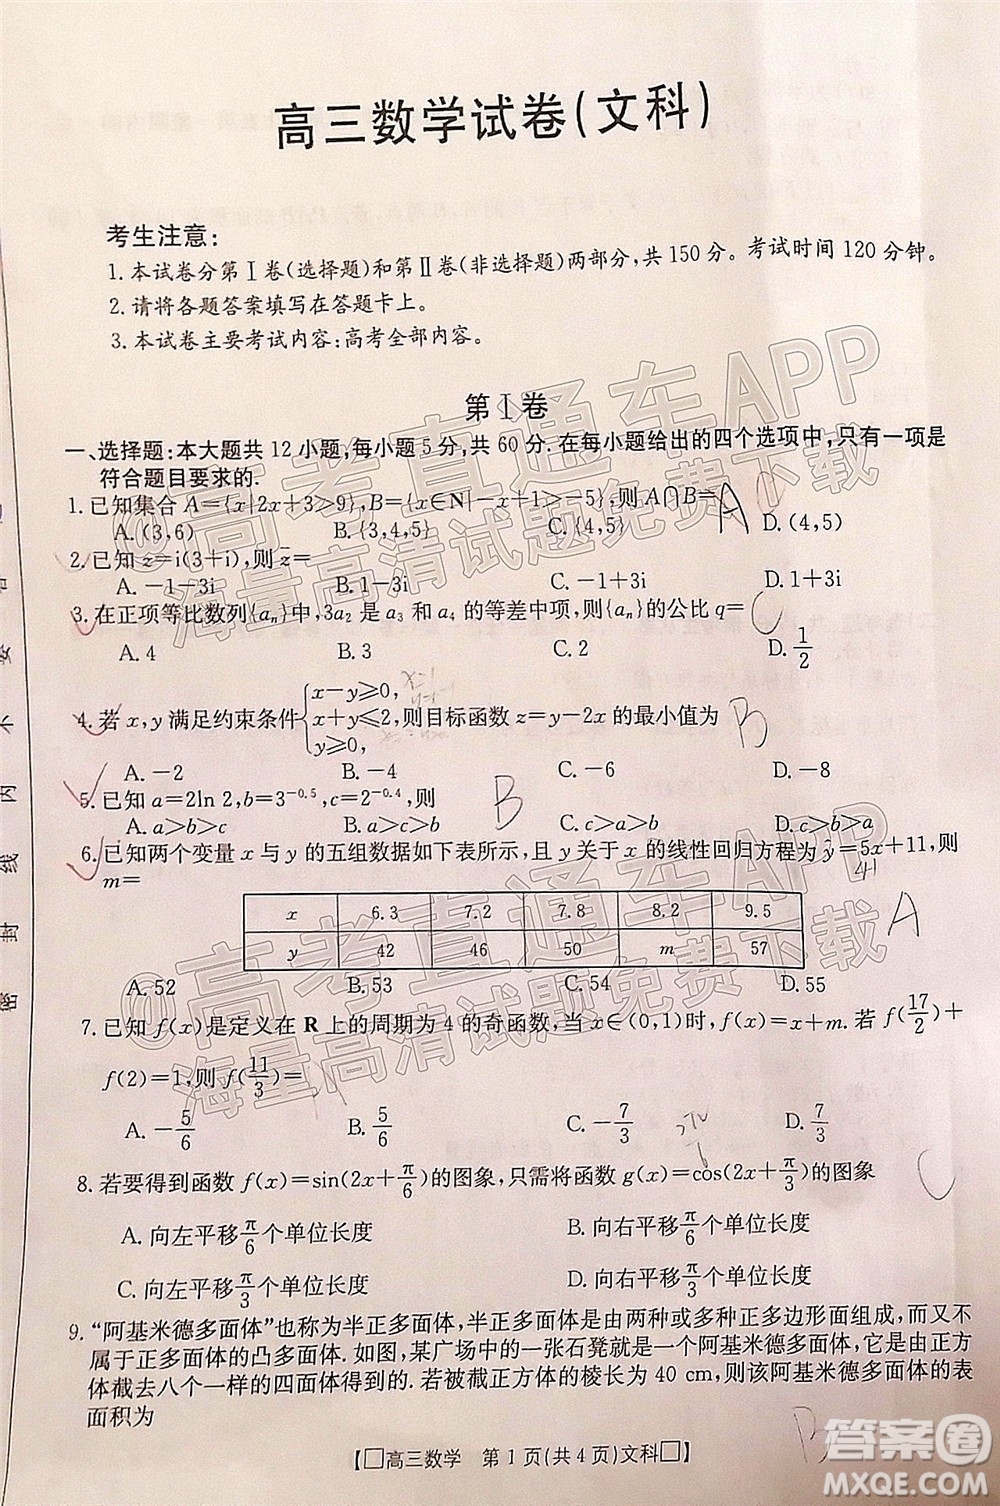 高三数学试卷(文科)
考生注意:
1.本试卷分第Ⅰ卷(选择题)和第Ⅱ卷(非选择题)两部分,共150分。考试时间120分钟。
2.请将各题答案填写在答题卡上。
3.本试卷主要考试内容:高考全部内容。
第Ⅰ卷
一、选择题:本大题共12小题,每小题5分,共60分.在每小题给出的四个选项中,只有一项是
符合题目要求的.
1.已知集合A={x|2x+3>9},B={x∈N|-x+1>-5},则A∩B= A
A.(3,6) B.{3,4,5} C.{4,5} D.(4,5)
2.已知z=i(3+i),则z̄=
A.-1-3i B.1-3i C.-1+3i D.1+3i
3.在正项等比数列{aₙ}中,3a₂是a₃和a₄的等差中项,则{aₙ}的公比q= C
A.4 B.3 C.2 D.1/2
x-y≥0,
4.若x,y满足约束条件{x+y≤2,则目标函数z=y-2x的最小值为 B
y≥0,
A.-2 B.-4 C.-6 D.-8
5.已知a=2ln 2,b=3^{-0.5},c=2^{-0.4},则 B
A.a>b>c B.a>c>b C.c>a>b D.c>b>a
6.已知两个变量x与y的五组数据如下表所示,且y关于x的线性回归方程为ŷ=5x+11,则
m=
x 6.3 7.2 7.8 8.2 9.5 A
y 42 46 50 m 57
A.52 B.53 C.54 D.55
7.已知f(x)是定义在R上的周期为4的奇函数,当x∈(0,1)时,f(x)=x+m.若f(17/2)+
f(2)=1,则f(11/3)=
A.-5/6 B.5/6 C.-7/3 D.7/3
8.若要得到函数f(x)=sin(2x+π/6)的图象,只需将函数g(x)=cos(2x+π/3)的图象 C
A.向左平移π/6个单位长度 B.向右平移π/6个单位长度
C.向左平移π/3个单位长度 D.向右平移π/3个单位长度
9.“阿基米德多面体”也称为半正多面体,半正多面体是由两种或多种正多边形面组成,而又不
属于正多面体的凸多面体.如图,某广场中的一张石凳就是一个阿基米德多面体,它是由正方
体截去八个一样的四面体得到的.若被截正方体的棱长为40 cm,则该阿基米德多面体的表
面积为
【□高三数学 第1页(共4页)文科□】
密 封 线 内 不 要 答
@高考直通车APP
海量高清试题免费下载
@高考直通车APP
海量高清试题免费下载
答案圈
MXQE.COM